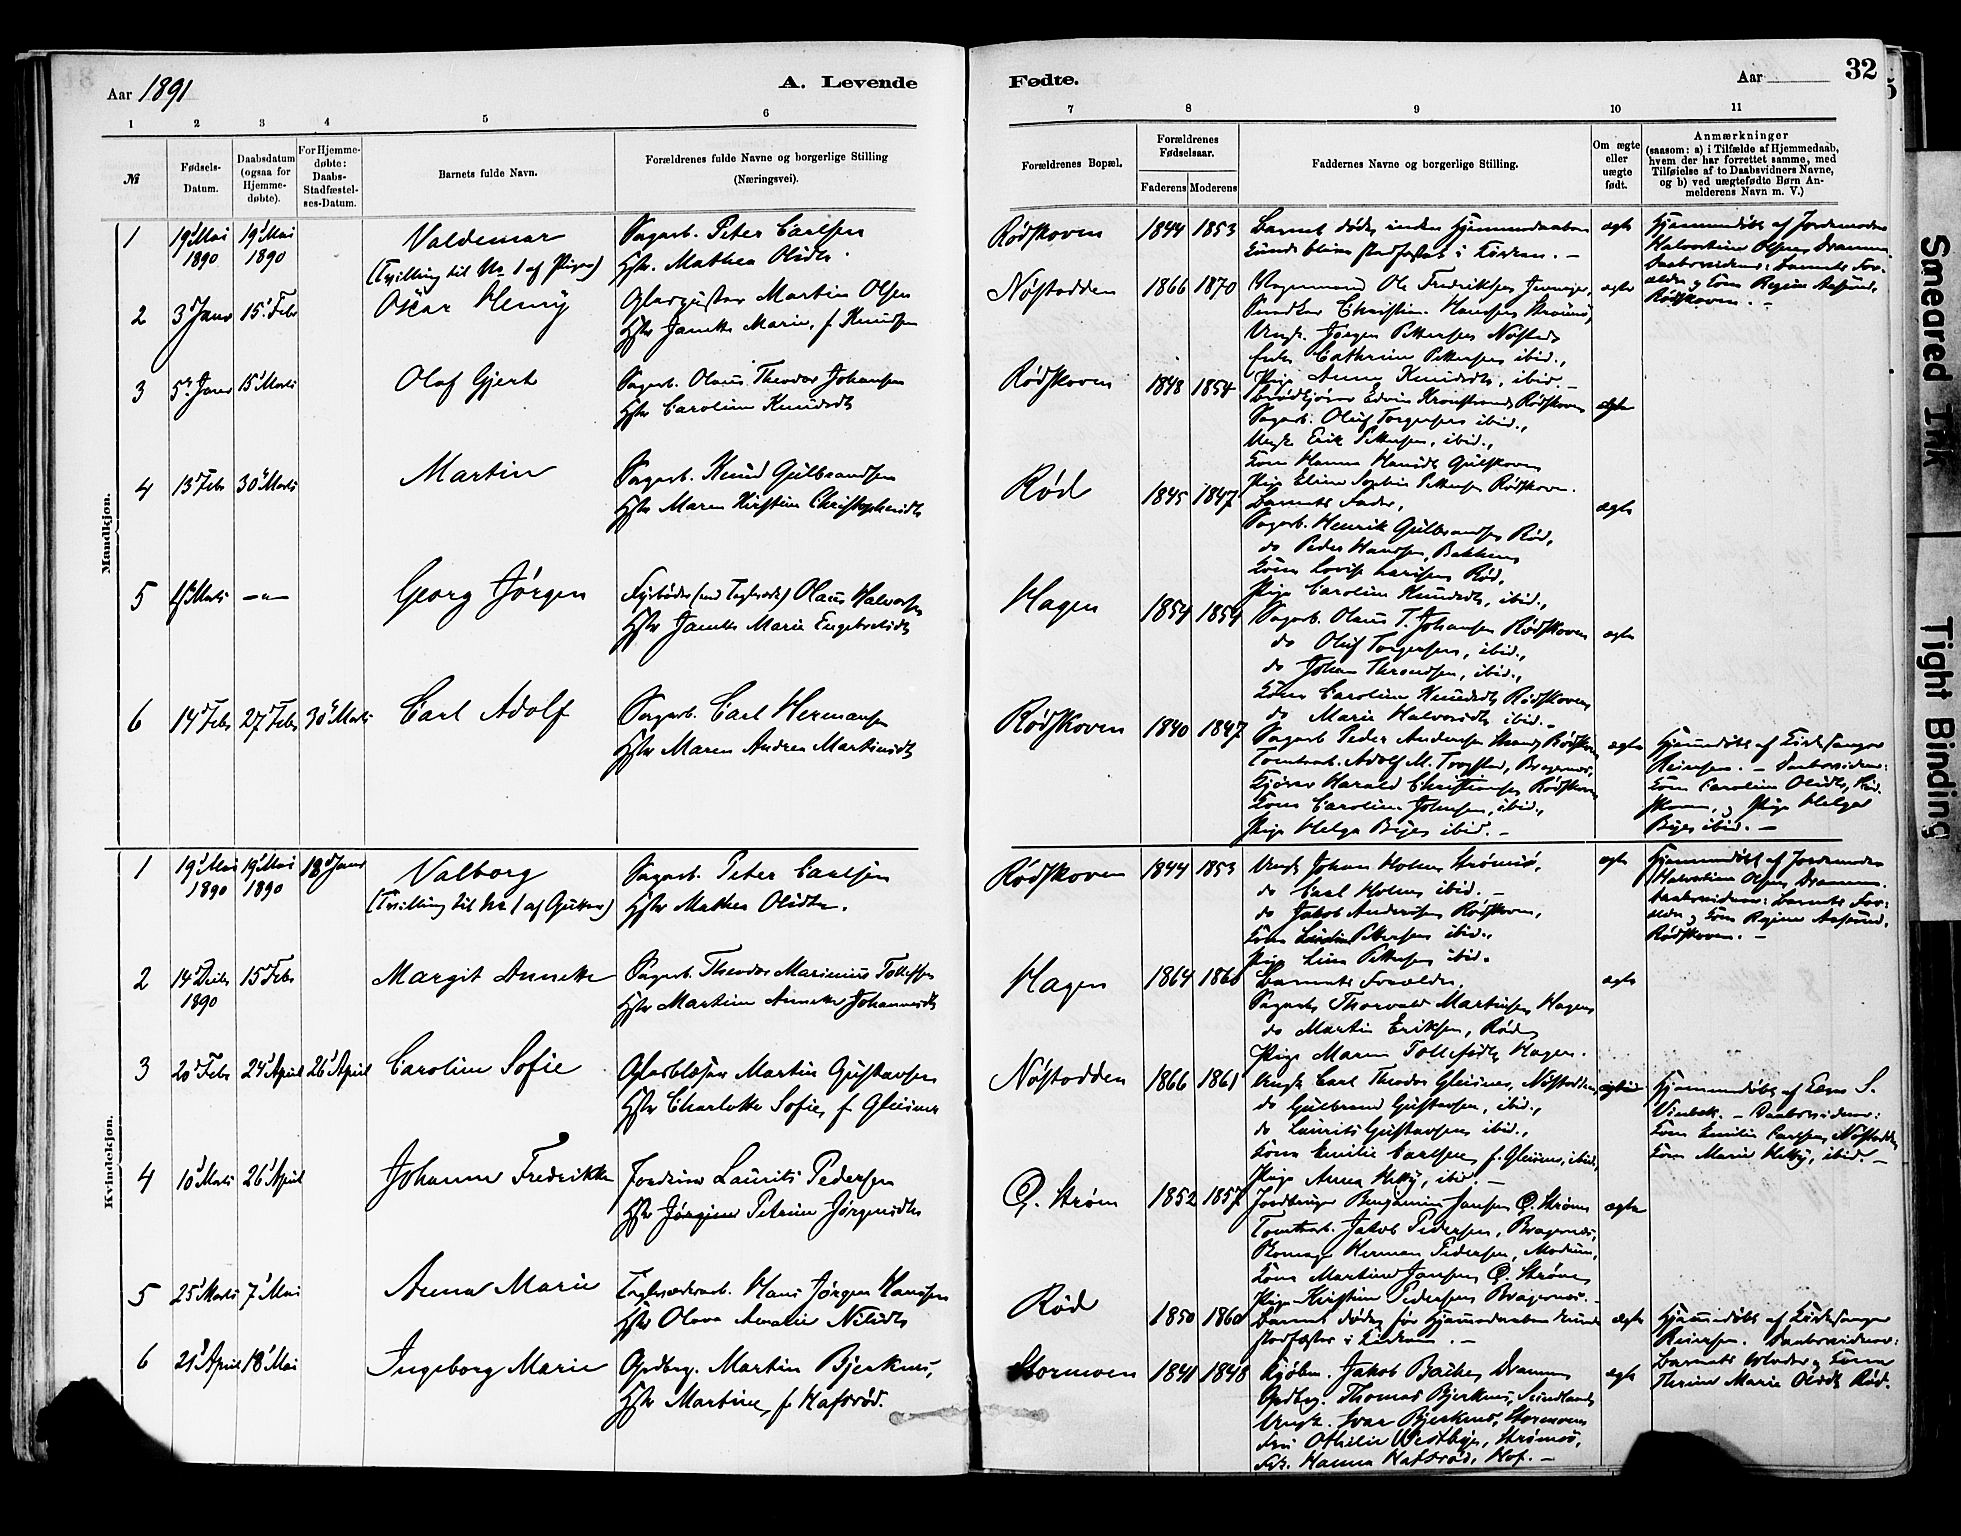 Aar 1891
A. Levende
Fødte.
Aar
32
1 2 3 4 5 6 7 8 9 10 11
№
Fødsels-Datum.
Daabsdatum (ogsaa for Hjemmedøbte).
For Hjemmedøbte: Daabs-Stadfæstelses-Datum.
Barnets fulde Navn.
Forældrenes fulde Navne og borgerlige Stilling (Næringsvei).
Forældrenes Bopæl.
Forældrenes Fødselsaar.
Faderens Moderens
Faddernes Navne og borgerlige Stilling.
Om ægte eller uægte født.
Anmærkninger
(saasom: a) i Tilfælde af Hjemmedaab, hvem der har forrettet samme, med Tilføielse af to Daabsvidners Navne, og b) ved uægtefødte Børn Anmelderens Navn m. V.)
Mandkjøn.
1 19 Mai 1890 19 Mai 1890 Valdemar (Tvilling til No 1 af Piger) Sagarb. Peter Carlsen
Hstr. Mathea Olsdtr.
Rødskoven 1844 1853 Barnet døde inden Hjemmedaaben
kunde blive stadfæstet i Kirken. –
ægte
Hjemmedøbt af Jordemoder
Halvordine Olsen, Drammen.
Daabsvidner: Barnets For-
ældre og Kone Regine Aasmund,
Rødskoven. –
2 3 Janr 15 Febr Oscar Henry Glaspuster Martin Olsen
Hstr Janette Marie, f. Knudsen
Nøstodden 1866 1870 Vognmand Ole Fredriksen
Snedker Christian Hansen Strømsø,
Ungk. Jørgen Pettersen Nøsted,
Enke Cathrine Pettersen ibid.,
Pige Anna Knudsdtr, ibid. –
ægte
3 5 Janr 15 Marts Olaf Gjert Sagarb. Olaus Theodor Johansen
Hstr Caroline Knudsdtr
Rødskoven 1848 1854 Edvin Rødskoven
Sagarb. Oluf Torgersen ibid.,
Ungk. Erik Pettersen, ibid.,
Kone Hanna Hansdtr
Pige Eline Sophie Pettersen Rødskoven.
ægte
4 13 Febr 30 Marts Martin Sagarb. Knud Gulbrandsen
Hstr Maren Kirstine Christophersdtr
Rød 1845 1847 Barnets Fader,
Sagarb. Henrik Gulbrandsen Rød,
do Peder Hansen, Bakken,
Kone Lovise Larsen Rød,
Pige Caroline Knudsdtr, ibid.,
ægte
5 Marts –"– Georg Jørgen Fyrbøder (ved Teglværk) Olaus Halvorsen
Hstr Janette Marie Engebretsdtr
Hagen 1854 1854 Sagarb. Olaus T. Johansen Rødskoven
do Oluf Torgersen, ibid.,
do Johan Throndsen, ibid.,
Kone Caroline Knudsdtr Rødskoven,
do Marie Halvorsdtr ibid. –
ægte
6 14 Febr 27 Febr 30 Marts Carl Adolf Sagarb. Carl Hermansen
Hstr Maren Andrea Martinsdtr
Rødskoven 1840 1847 Sagarb Peder Andersen Rødskoven
Tomtearb. Adolf M. Trogstad, Bragernæs,
Kjører Harald Christiansen Rødskoven
Kone Caroline Johnsen, ibid.,
Pige Helga Byes ibid. –
ægte
Hjemmedøbt af Kirkesanger
Reiersen. – Daabsvidner:
Kone Caroline Olsdtr, Rød-
skoven, og Pige Helga
Byes ibid. –
Kvindekjøn.
1 19 Mai 1890 19 Mai 1890 18 Janr Valborg (Tvilling til No 1 af Gutter) Sagarb. Peter Carlsen
Hstr Mathea Olsdtr.
Rødskoven 1844 1853 Ungk Johan Holm, Strømsø,
do Carl Holm, ibid. –
do Jakob Andersen Rødskoven,
Kone Pettersen ibid.,
Pige Lina Pettersen ibid.
ægte
Hjemmedøbt af Jordemoder
Halvordine Olsen, Drammen.
Daabsvidner: Barnets For-
ældre og Kone Regine Aasmund,
Rødskoven. –
2 14 Decbr 1890 15 Febr Margit Annette Sagarb. Theodor Marinius Tollefsen
Hstr Martine Annette Johannesdtr
Hagen 1864 1860 Barnets Forældre,
Sagarb. Thorvald Martinsen Hagen,
do Martin Eriksen, Røden
Pige Maren Tollefsdtr Hagen.
ægte
3 20 Febr 24 April 26 April Caroline Sofie Glasblæser Martin Gustavsen
Hstr Charlotte Sofie, f. Gleisner
Nøstodden 1866 1861 Ungk Carl Theodor Gleisner, Nøstodden,
do Gulbrand Gustavsen, ibid.,
do Laurits Gustavsen ibid.,
Kone Emilie Carlsen f. Gleisner, ibid.,
Pige Anna ibid. –
Hjemmedøbt af
– Daabsvidner:
Kone Emilie Carlsen, Nøstodden
Kone Marie ibid. –
4 10 Marts 26 April Johanne Fredrikke Laurits Pedersen
Hstr Jørgine Petrine Jørgensdtr
Ø. Strøm 1852 1857 Benjamin Jansen Ø. Strøm
Tomtearb. Jakob Pedersen, Bragernæs,
Herman Pedersen, Modum,
Kone Martine Jansen Ø. Strøm,
Pige Kirstine Pedersen Bragernæs. –
ægte
5 25 Marts 7 Mai Anna Marie Teglværksarb. Hans Jørgen Hansen
Hstr Olava Amalie Nilsdtr
Rød 1850 1860 Barnet døde før Hjemmedaaben kunde
stadfæstes i Kirken. –
ægte
Hjemmedøbt af Kirkesanger
Reiersen. Daabsvidner:
Barnets Moder og Kone
Thrine Marie Olsdtr Rød.
6 21 April 18 Mai Ingeborg Marie Gpdbrg. Martin Bjerknes,
Hstr Martine, f. Hafsrød.
Stormoen 1841 1848 Kjøbm. Jakob Bache, Drammen
Gpdbrg. Thomas Bjerknes, Sundland,
Ungk. Ivar Bjerknes, Stormoen
Fru Othilie Westbye, Strømsø,
Frk. Hanna Hafsrød, Hof. –
ægte
Smeared Ink
Tight Binding